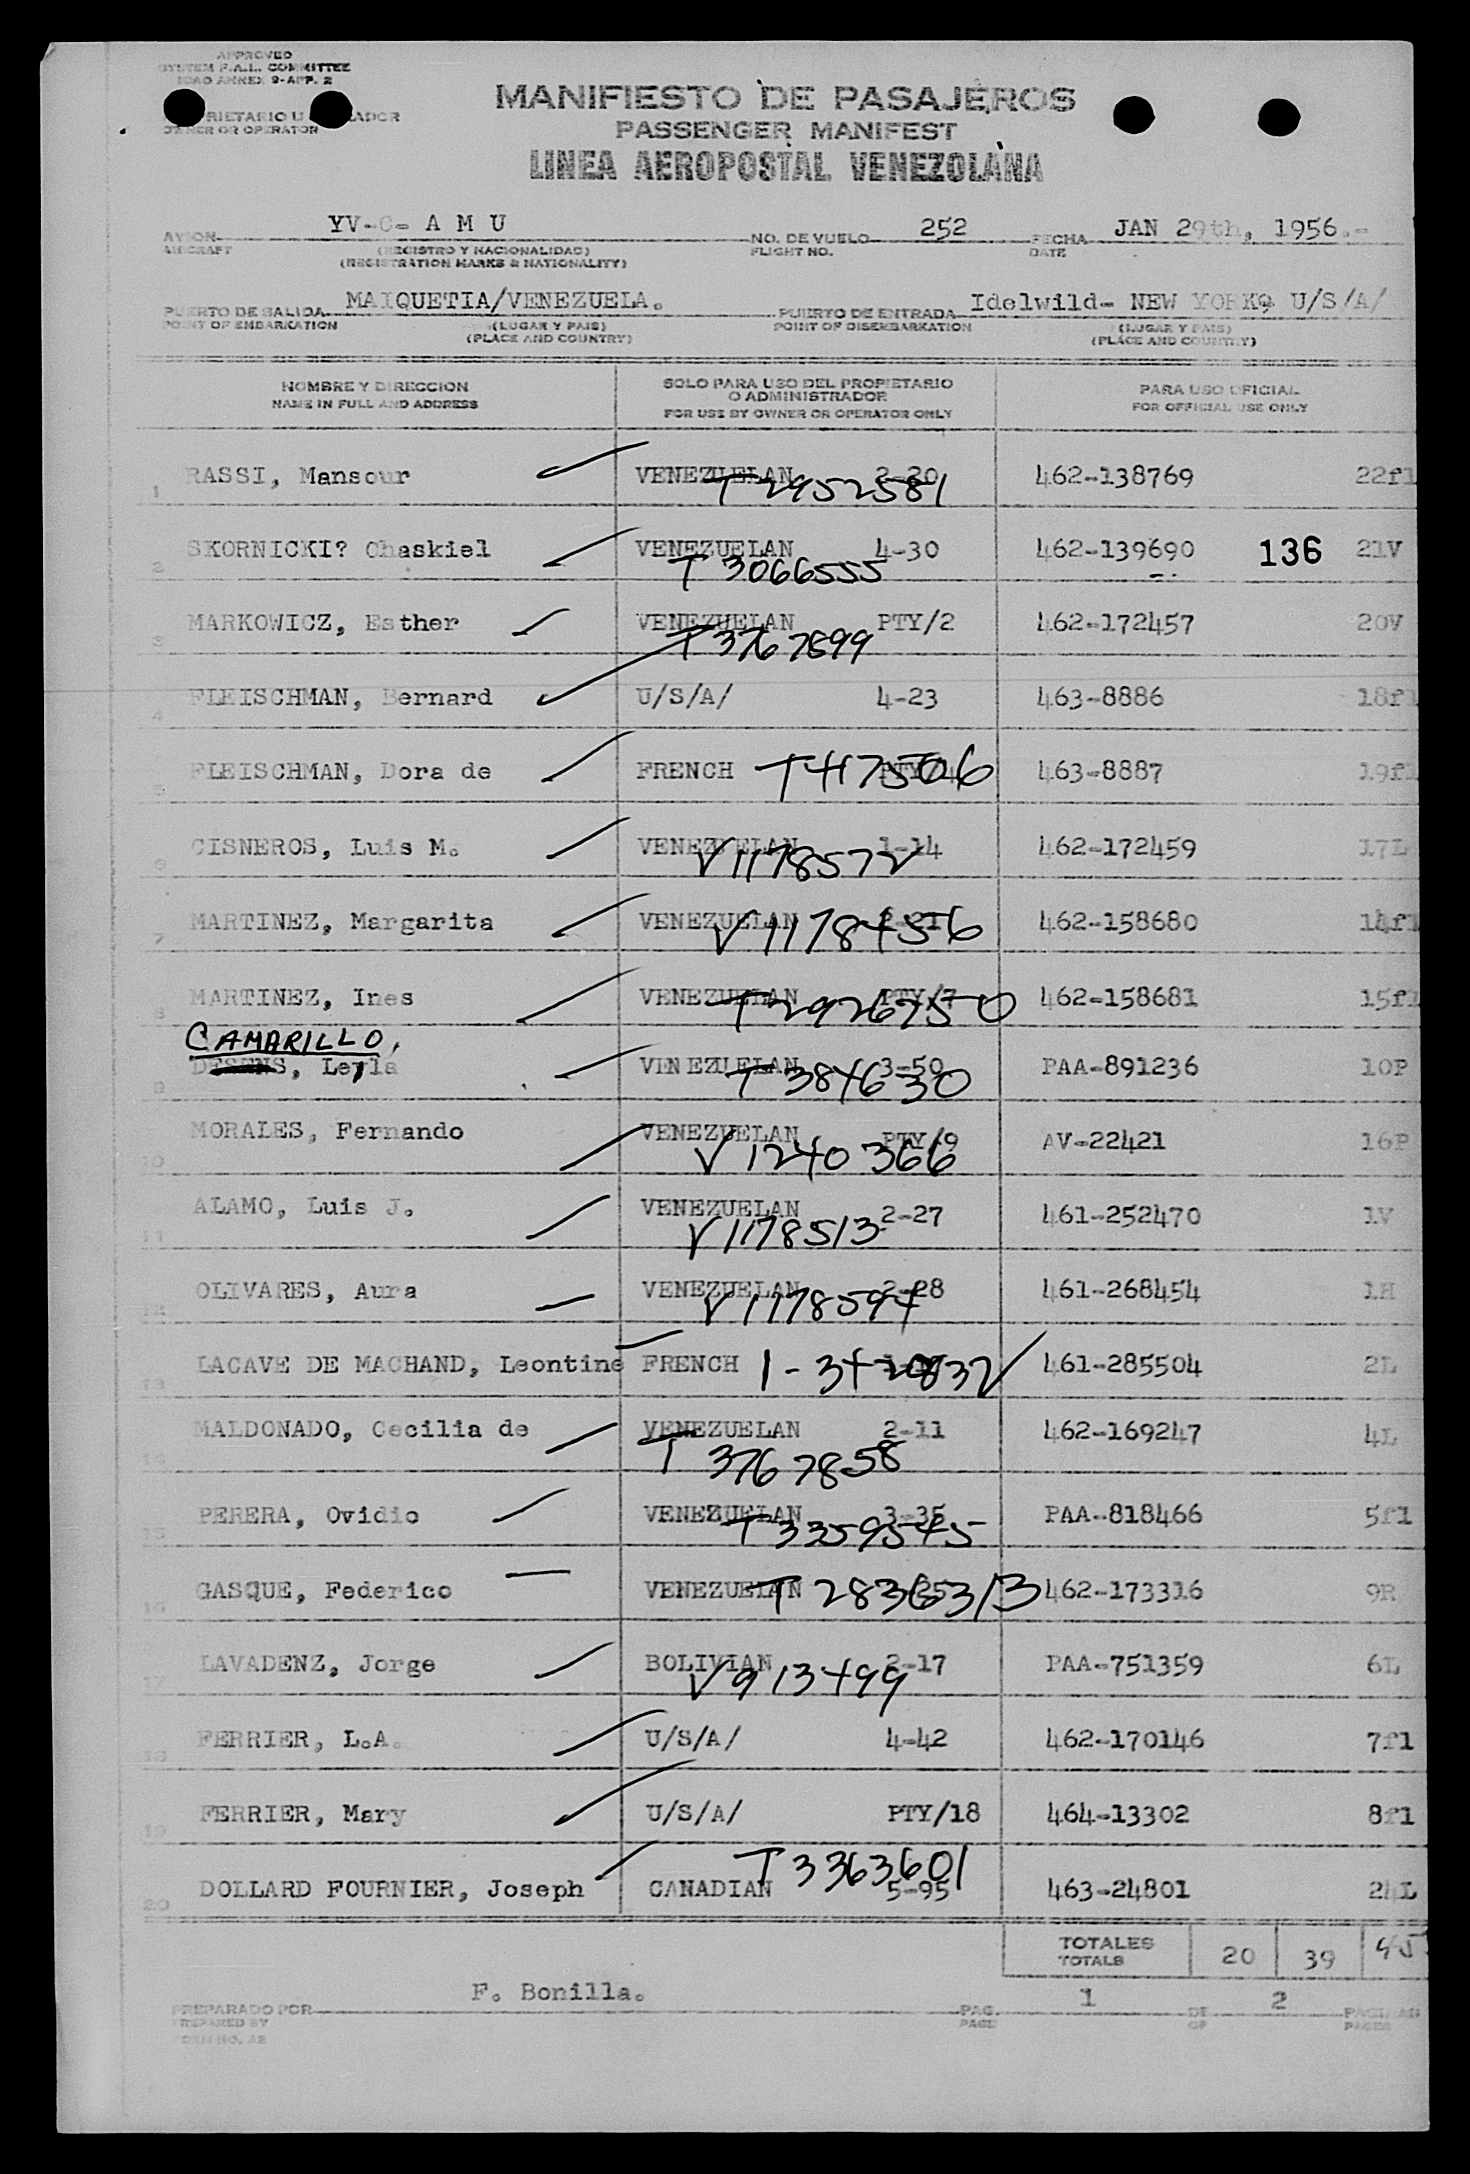 APPROVED
SYSTEM F.A.L. COMMITTEE
ICAO ANNEX 9-APP. 2
MANIFIESTO DE PASAJEROS
OWNER OR OPERATOR
PASSENGER MANIFEST
LINEA AEROPOSTAL VENEZOLANA
AVION YV-C- A M U NO. DE VUELO 252 FECHA JAN 29th, 1956.-
AIRCRAFT (REGISTRO Y NACIONALIDAD) FLIGHT NO. DATE
(REGISTRATION MARKS & NATIONALITY)
PUERTO DE SALIDA MAIQUETIA/VENEZUELA. PUERTO DE ENTRADA Idelwild- NEW YORK, U/S/A/
POINT OF EMBARKATION (LUGAR Y PAIS) POINT OF DISEMBARKATION (LUGAR Y PAIS)
(PLACE AND COUNTRY) (PLACE AND COUNTRY)
NOMBRE Y DIRECCION SOLO PARA USO DEL PROPIETARIO PARA USO OFICIAL
NAME IN FULL AND ADDRESS O ADMINISTRADOR FOR OFFICIAL USE ONLY
FOR USE BY OWNER OR OPERATOR ONLY
1 RASSI, Mansour VENEZUELAN 2-20 462-138769 22fl
T2952581
2 SKORNICKI? Chaskiel VENEZUELAN 4-30 462-139690 136 21V
T 3066555
3 MARKOWICZ, Esther VENEZUELAN PTY/2 462-172457 20V
T3767899
4 FLEISCHMAN, Bernard U/S/A/ 4-23 463-8886 18fl
5 FLEISCHMAN, Dora de FRENCH T4175006 PTY/4 463-8887 19fl
6 CISNEROS, Luis M. VENEZUELAN 1-14 462-172459 17L
V1178572
7 MARTINEZ, Margarita VENEZUELAN 462-158680 14fl
V1178456
8 MARTINEZ, Ines VENEZUELAN PTY/7 462-158681 15fl
T2926750
CAMARILLO,
9 Leyla VENEZUELAN 3-50 PAA-891236 10P
T384630
10 MORALES, Fernando VENEZUELAN PTY/9 AV-22421 16P
V1240366
11 ALAMO, Luis J. VENEZUELAN 2-27 461-252470 1V
V1178513
12 OLIVARES, Aura VENEZUELAN 2-28 461-268454 1H
V1178594
13 LACAVE DE MACHAND, Leontine FRENCH 461-285504 2L
14 MALDONADO, Cecilia de VENEZUELAN 2-11 462-169247 4L
T 3767858
15 PERERA, Ovidio VENEZUELAN 3-35 PAA-818466 5fl
T3359545
16 GASQUE, Federico VENEZUELAN T2836313 462-173316 9R
17 LAVADENZ, Jorge BOLIVIAN 2-17 PAA-751359 6L
V913499
18 FERRIER, L.A. U/S/A/ 4-42 462-170146 7fl
19 FERRIER, Mary U/S/A/ PTY/18 464-13302 8fl
T3363601
20 DOLLARD FOURNIER, Joseph CANADIAN 5-95 463-24801 24L
TOTALES 20 39
TOTALS
F. Bonilla. 1 2
PREPARADO POR PAG. DE PAGINAS
PREPARED BY PAGE OF PAGES
FORM NO. A2